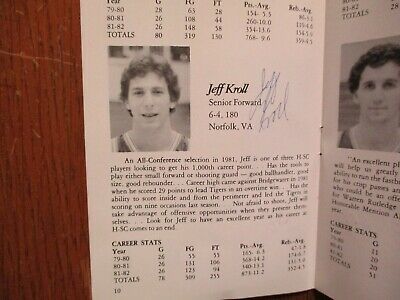 Year G FG FT Pts.-Avg. Reb.-Avg.
79-80 28 63 28 154- 5.5
80-81 26 108 44 260-10.0
81-82 26 158 58 354-13.6
TOTALS 80 319 130 768- 9.6
Jeff Kroll
Senior Forward
6-4, 180
Norfolk, VA
Jeff
Kroll
An All-Conference selection in 1981, Jeff is one of three H-SC
players looking to get his 1,000th career point. . . Has the tools to
play either small forward or shooting guard — good ballhandler, good
size, good rebounder. . . Career high came against Bridgewater in 1981
when he scored 29 points to lead Tigers to an overtime win. . . Has the
ability to score inside and from the perimeter and led the Tigers in
scoring on nine occasions last season. Not afraid to shoot, Jeff will
take advantage of offensive opportunities when they present them-
selves. . . Look for Jeff to have an excellent year as his career at
H-SC comes to an end.
CAREER STATS
Year G FG FT Pts.-Avg. Reb.-Avg.
79-80 26 55 55 165- 6.3 47-1.8
80-81 26 131 106 368-14.2 174-6.7
81-82 26 123 94 340-13.1 131-5.0
TOTALS 78 309 255 873-11.2 352-4.5
10
"An excellent
will help us greatly
ability to run the fastb
for his crisp passes and
for Warren Rutledge
Honorable Mention A
CAREER STATS
Year G
79-80 11
80-81 20
81-82 20
TOTALS 51